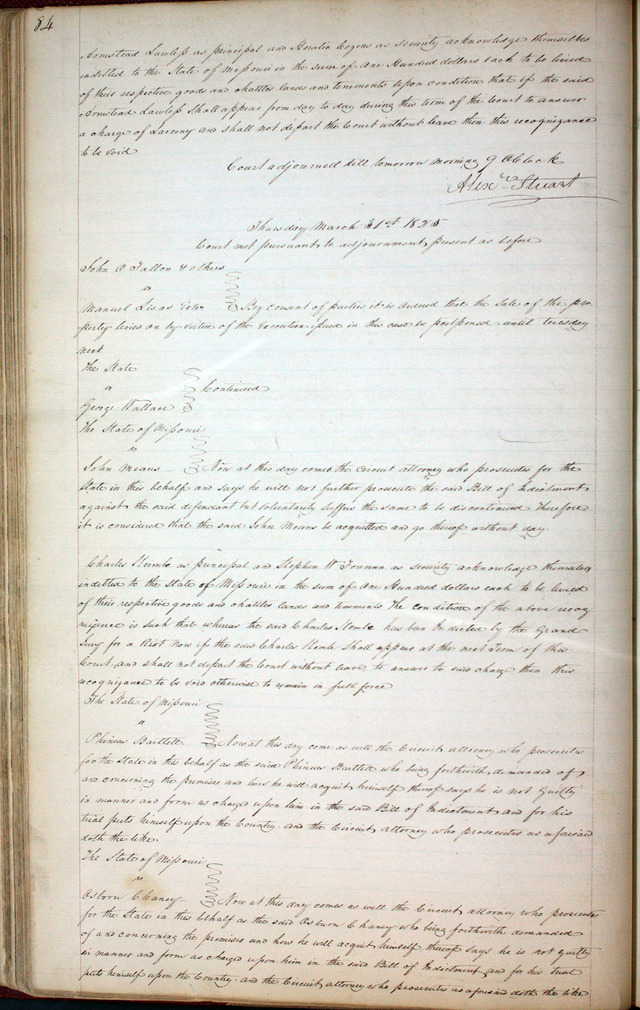 84
Armstead Lawless as principal and Horatio Cozens as security acknowledge themselves
indebted to the State of Missouri in the sum of One Hundred dollars each to be levied
of their respective goods and chattles lands and tenements upon condition that if the said
Armstead Lawless Shall appear from day to day during this term of the Court to answer
a charge of Larceny and shall not depart the Court without leave then this recognizance
to be void
Court adjourned till tomorrow morning 9 OClock
Alexr Stuart
Thursday March 31st 1825
Court met pursuant to adjournment, present as before
John O Fallon & others
vs
Manuel Lisas Extr By consent of parties it is ordered that the Sale of the pro-
perty levied on by virtue of the Execution issued in this case be postponed until tuesday
next
The State
vs Continued
George Wallace
The State of Missouri
vs
John Means Now at this day comes the Circuit attorney who prosecutes for the
State in this behalf and says he will not further prosecute the said Bill of Indictment
against the said defendant but voluntarily suffers the same to be discontinued Therefore
it is considered that the said John Means be acquitted and go thereof without day.
Charles Stemle as principal and Stephen W as security acknowledge themselves
indebted to the State of Missouri in the sum of One Hundred dollars each to be levied
of their respective goods and chattles lands and tenements The condition of the above recog
nizance is such that whereas the said Charles Stemle has been Indicted by the Grand
Jury for a Riot Now if the said Charles Stemle Shall appear at the next Term of this
Court, and shall not depart the Court without leave to answer to said charge then this
recognizance to be void otherwise to remain in full force
The State of Missouri
vs
Phineas Bartlett Now at this day come as well the Circuit attorney who prosecutes
for the State in this behalf as the said Phineas Bartlett who being forthwith, demanded of
and concerning the premises and how he will acquit himself thereof says he is not Guilty
in manner and form as charged upon him in the said Bill of Indictment and for his
trial puts himself upon the Country. and the Circuit attorney who prosecutes as aforesaid
doth the like.
The State of Missouri
vs
Osborn Chaney Now at this day comes as well the Circuit attorney who prosecutes
for the State in this behalf as the said Osborn Chaney who being forthwith demanded
of and concerning the premises and how he will acquit himself thereof Says he is not guilty
in manner and form as charged upon him in the said Bill of Indictment and for his trial
puts himself upon the Country. and the Circuit attorney who prosecutes as aforesaid doth the like